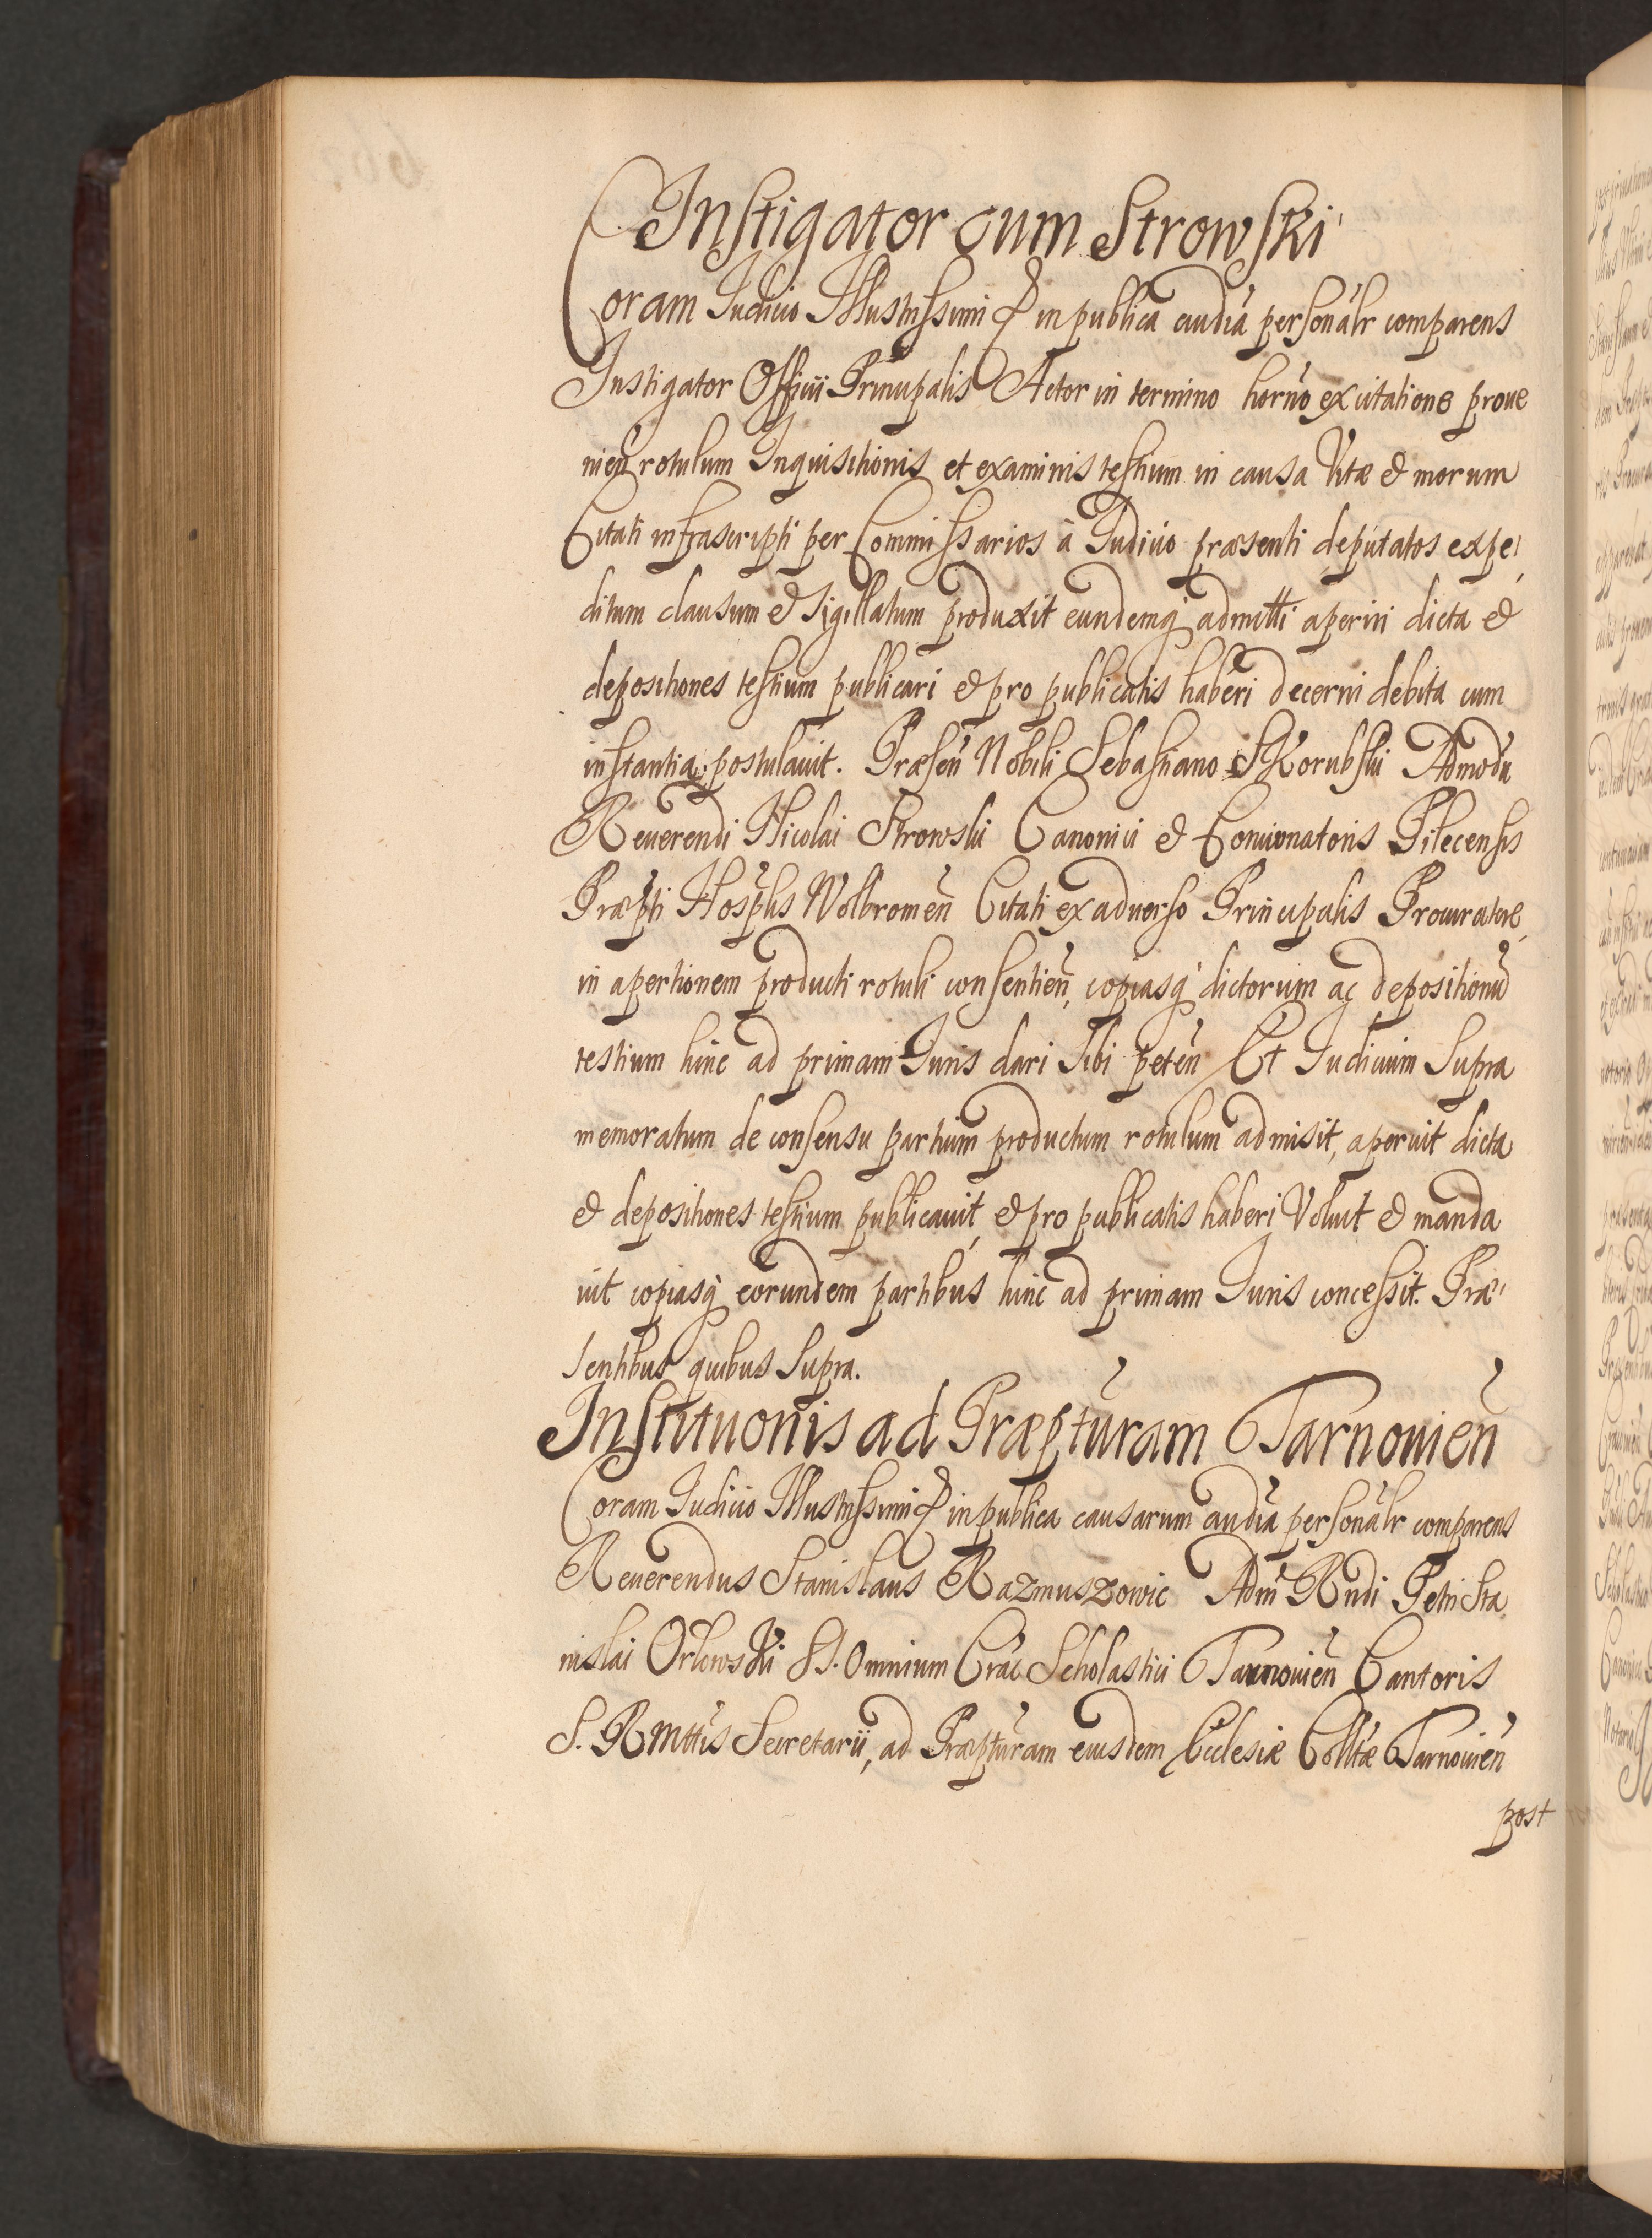 Instigator cum Strowski
Coram Judicio Illustrissimi &c in publica audia personalr comparens
Instigator Officii Principalis Actor in termino horno ex citatione prove
nien rotulum Inquisitionis et examinis testium in causa Vitæ & morum
Citati infrascripti per Commissarios à Judicio præsenti deputatos expe
ditum clausum & sigillatum produxit eundemq admitti aperiri dicta &
depositiones testium publicari & pro publicatis haberi decerni debita cum
instantia postulavit. Præsen Nobili Sebastiano SKorubski Admodu
Reuerendi Nicolai Strowski Canonici & Concionatoris Pilecensis
Præpti Hosplis Wolbromen Citati ex aduerso Principalis Procuratore
in apertionem producti rotuli consentien, copiasq dictorum ac depositionu
testium hinc ad primam Juris dari sibi peten Et Judicium supra
memoratum de consensu partium productum rotulum admisit, aperuit dicta
& depositiones testium publicauit, & pro publicatis haberi Voluit & manda
uit copiasq eorundem partibus hinc ad primam Juris concessit. Præ
sentibus quibus supra.
Institutionis ad Præpturam Tarnouien
Coram Judicio Illustrissimi &c in publica causarum audia personalr comparens
Reuerendus Stanislaus Razmuszowic Adm Rndi Petri Sta
nislai Orlowski SS. Omnium Crac Scholastici Tarnouien Cantoris
S. R Mttis Secretarii, ad Præpturam eiusdem Ecclesiæ Colltæ Tarnouien
post